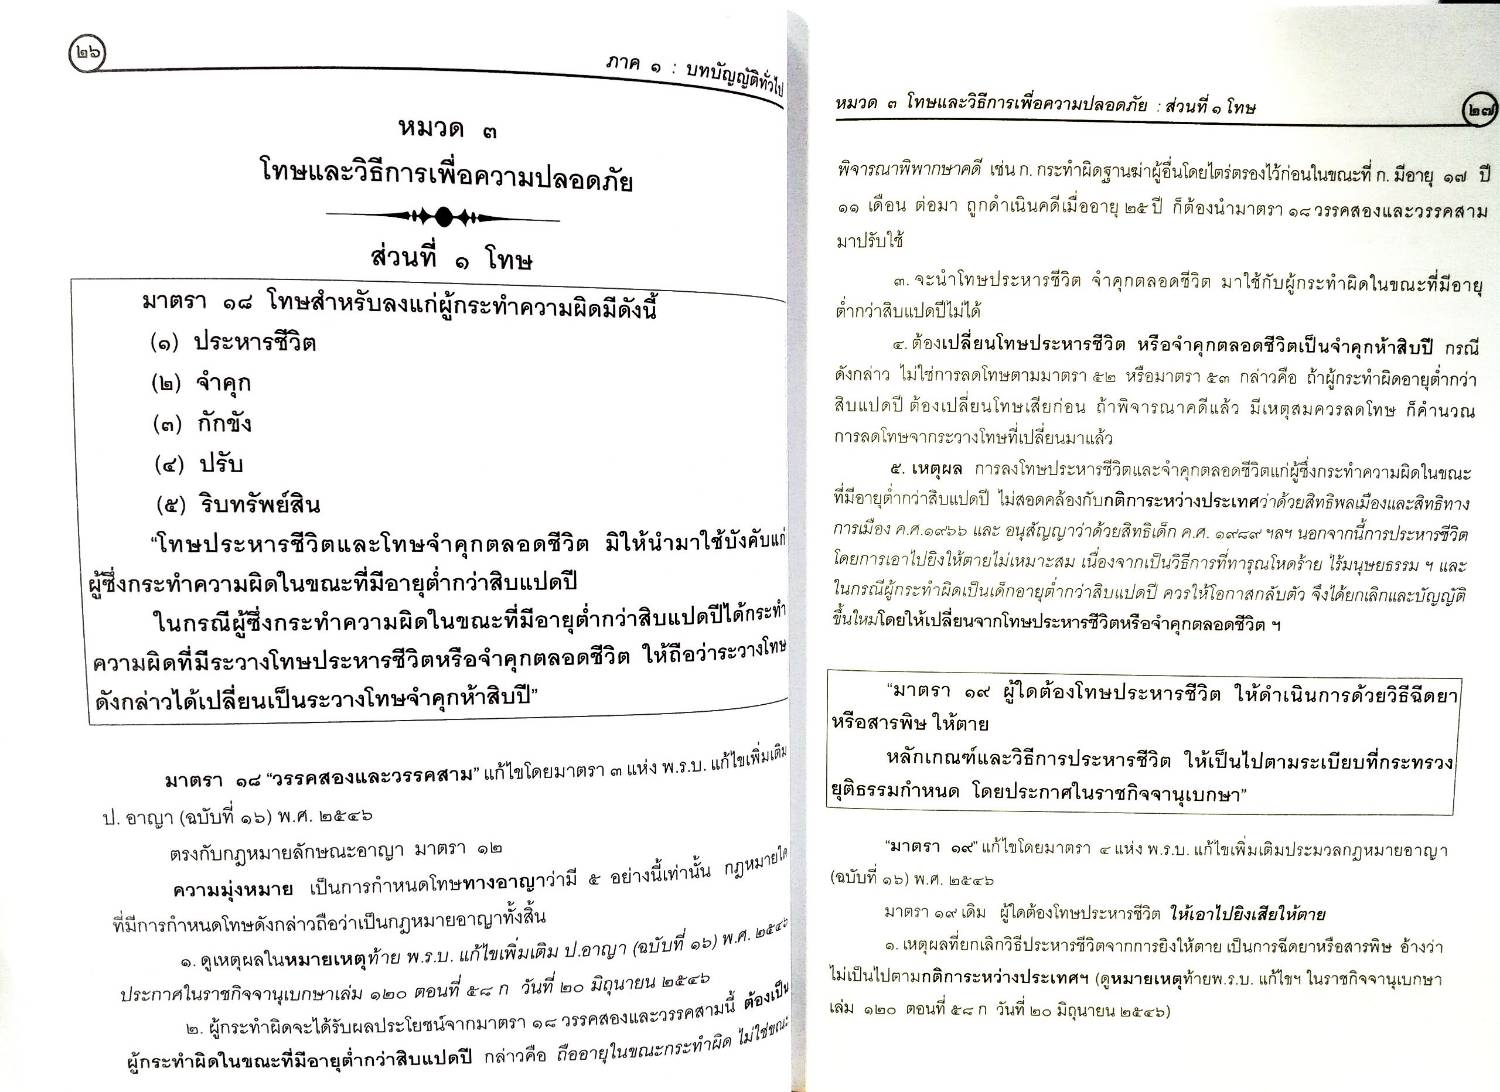 ๒๖
ภาค ๑ : บทบัญญัติทั่วไป
หมวด ๓
โทษและวิธีการเพื่อความปลอดภัย
ส่วนที่ ๑ โทษ
มาตรา ๑๘ โทษสำหรับลงแก่ผู้กระทำความผิดมีดังนี้
(๑) ประหารชีวิต
(๒) จำคุก
(๓) กักขัง
(๔) ปรับ
(๕) ริบทรัพย์สิน
“โทษประหารชีวิตและโทษจำคุกตลอดชีวิต มิให้นำมาใช้บังคับแก่
ผู้ซึ่งกระทำความผิดในขณะที่มีอายุต่ำกว่าสิบแปดปี
ในกรณีผู้ซึ่งกระทำความผิดในขณะที่มีอายุต่ำกว่าสิบแปดปีได้กระทำ
ความผิดที่มีระวางโทษประหารชีวิตหรือจำคุกตลอดชีวิต ให้ถือว่าระวางโทษ
ดังกล่าวได้เปลี่ยนเป็นระวางโทษจำคุกห้าสิบปี”
มาตรา ๑๘ “วรรคสองและวรรคสาม” แก้ไขโดยมาตรา ๓ แห่ง พ.ร.บ. แก้ไขเพิ่มเติม
ป. อาญา (ฉบับที่ ๑๖) พ.ศ. ๒๕๔๖
ตรงกับกฎหมายลักษณะอาญา มาตรา ๑๒
ความมุ่งหมาย เป็นการกำหนดโทษทางอาญาว่ามี ๕ อย่างนี้เท่านั้น กฎหมายใด
ที่มีการกำหนดโทษดังกล่าวถือว่าเป็นกฎหมายอาญาทั้งสิ้น
๑. ดูเหตุผลในหมายเหตุท้าย พ.ร.บ. แก้ไขเพิ่มเติม ป.อาญา (ฉบับที่ ๑๖) พ.ศ. ๒๕๔๖
ประกาศในราชกิจจานุเบกษาเล่ม ๑๒๐ ตอนที่ ๕๘ ก วันที่ ๒๐ มิถุนายน ๒๕๔๖
๒. ผู้กระทำผิดจะได้รับผลประโยชน์จากมาตรา ๑๘ วรรคสองและวรรคสามนี้ ต้องเป็น
ผู้กระทำผิดในขณะที่มีอายุต่ำกว่าสิบแปดปี กล่าวคือ ถืออายุในขณะกระทำผิด ไม่ใช่ขณะ
หมวด ๓ โทษและวิธีการเพื่อความปลอดภัย : ส่วนที่ ๑ โทษ
๒๗
พิจารณาพิพากษาคดี เช่น ก. กระทำผิดฐานฆ่าผู้อื่นโดยไตร่ตรองไว้ก่อนในขณะที่ ก. มีอายุ ๑๗ ปี
๑๑ เดือน ต่อมา ถูกดำเนินคดีเมื่ออายุ ๒๕ ปี ก็ต้องนำมาตรา ๑๘ วรรคสองและวรรคสาม
มาปรับใช้
๓. จะนำโทษประหารชีวิต จำคุกตลอดชีวิต มาใช้กับผู้กระทำผิดในขณะที่มีอายุ
ต่ำกว่าสิบแปดปีไม่ได้
๔. ต้องเปลี่ยนโทษประหารชีวิต หรือจำคุกตลอดชีวิตเป็นจำคุกห้าสิบปี กรณี
ดังกล่าว ไม่ใช่การลดโทษตามมาตรา ๕๒ หรือมาตรา ๕๓ กล่าวคือ ถ้าผู้กระทำผิดอายุต่ำกว่า
สิบแปดปี ต้องเปลี่ยนโทษเสียก่อน ถ้าพิจารณาคดีแล้ว มีเหตุสมควรลดโทษ ก็คำนวณ
การลดโทษจากระวางโทษที่เปลี่ยนมาแล้ว
๕. เหตุผล การลงโทษประหารชีวิตและจำคุกตลอดชีวิตแก่ผู้ซึ่งกระทำความผิดในขณะ
ที่มีอายุต่ำกว่าสิบแปดปี ไม่สอดคล้องกับกติการะหว่างประเทศว่าด้วยสิทธิพลเมืองและสิทธิทาง
การเมือง ค.ศ.๑๙๖๖ และ อนุสัญญาว่าด้วยสิทธิเด็ก ค.ศ. ๑๙๘๙ ฯลฯ นอกจากนี้การประหารชีวิต
โดยการเอาไปยิงให้ตายไม่เหมาะสม เนื่องจากเป็นวิธีการที่ทารุณโหดร้าย ไร้มนุษยธรรม ฯ และ
ในกรณีผู้กระทำผิดเป็นเด็กอายุต่ำกว่าสิบแปดปี ควรให้โอกาสกลับตัว จึงได้ยกเลิกและบัญญัติ
ขึ้นใหม่โดยให้เปลี่ยนจากโทษประหารชีวิตหรือจำคุกตลอดชีวิต ฯ
“มาตรา ๑๙ ผู้ใดต้องโทษประหารชีวิต ให้ดำเนินการด้วยวิธีฉีดยา
หรือสารพิษ ให้ตาย
หลักเกณฑ์และวิธีการประหารชีวิต ให้เป็นไปตามระเบียบที่กระทรวง
ยุติธรรมกำหนด โดยประกาศในราชกิจจานุเบกษา”
“มาตรา ๑๙” แก้ไขโดยมาตรา ๔ แห่ง พ.ร.บ. แก้ไขเพิ่มเติมประมวลกฎหมายอาญา
(ฉบับที่ ๑๖) พ.ศ. ๒๕๔๖
มาตรา ๑๙ เดิม ผู้ใดต้องโทษประหารชีวิต ให้เอาไปยิงเสียให้ตาย
๑. เหตุผลที่ยกเลิกวิธีประหารชีวิตจากการยิงให้ตาย เป็นการฉีดยาหรือสารพิษ อ้างว่า
ไม่เป็นไปตามกติการะหว่างประเทศฯ (ดูหมายเหตุท้ายพ.ร.บ. แก้ไขฯ ในราชกิจจานุเบกษา
เล่ม ๑๒๐ ตอนที่ ๕๘ ก วันที่ ๒๐ มิถุนายน ๒๕๔๖)